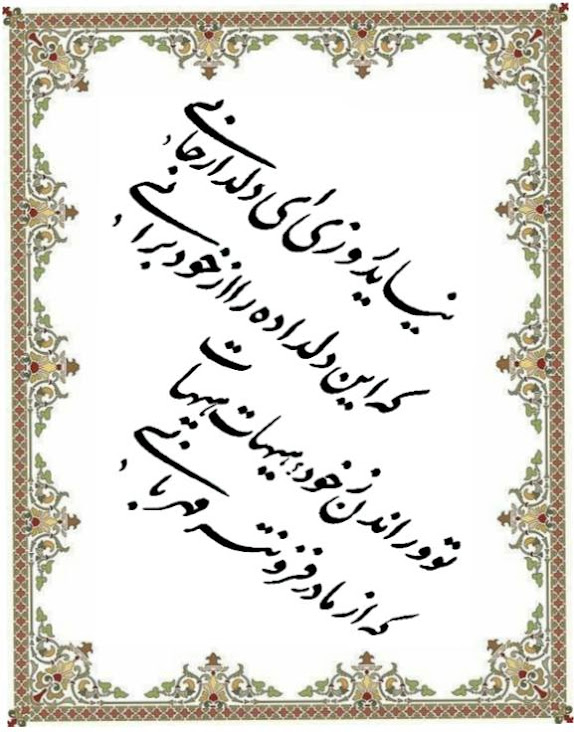 نیاید روزی ای دلدار جانی
که این دلداده را از خود برانی
تو و راندن ز خود، هیهات هیهات
که از مادر فزونتر مهربانی